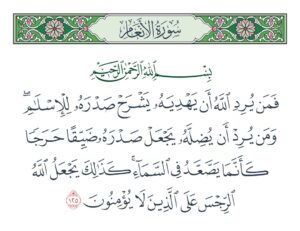 سُورَةُ الأَنْعَامِ
بِسْمِ اللَّهِ الرَّحْمَٰنِ الرَّحِيمِ
فَمَن يُرِدِ اللَّهُ أَن يَهْدِيَهُۥ يَشْرَحْ صَدْرَهُۥ لِلْإِسْلَٰمِ ۖ
وَمَن يُرِدْ أَن يُضِلَّهُۥ يَجْعَلْ صَدْرَهُۥ ضَيِّقًا حَرَجًا
كَأَنَّمَا يَصَّعَّدُ فِى السَّمَآءِ ۚ كَذَٰلِكَ يَجْعَلُ اللَّهُ
الرِّجْسَ عَلَى الَّذِينَ لَا يُؤْمِنُونَ ١٢٥